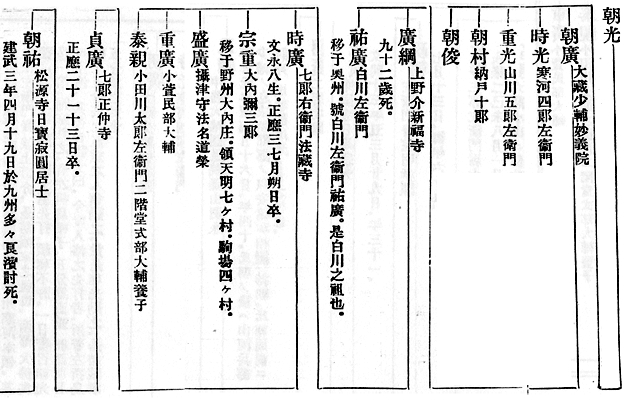 朝光
朝廣大藏少輔妙義院
時光寒河四郎左衞門
重光山川五郎左衞門
朝村納戸十郎
朝俊
廣綱上野介新福寺
九十二歲死。
祐廣白川左衞門
移于奥州。號白川左衞門祐廣。是白川之祖也。
時廣七郎右衞門法藏寺
文永八生。正應三七月朔日卒。
宗重大內彌三郎
移于野州大內庄。領天明七ケ村。駒場四ケ村。
盛廣攝津守法名道榮
重廣小萱民部大輔
泰親小田川太郎左衞門二階堂式部大輔養子
貞廣七郎正仲寺
正應二十一十三日卒。
朝祐松源寺日寶寂圓居士
建武三年四月十九日於九州多々良濱討死。